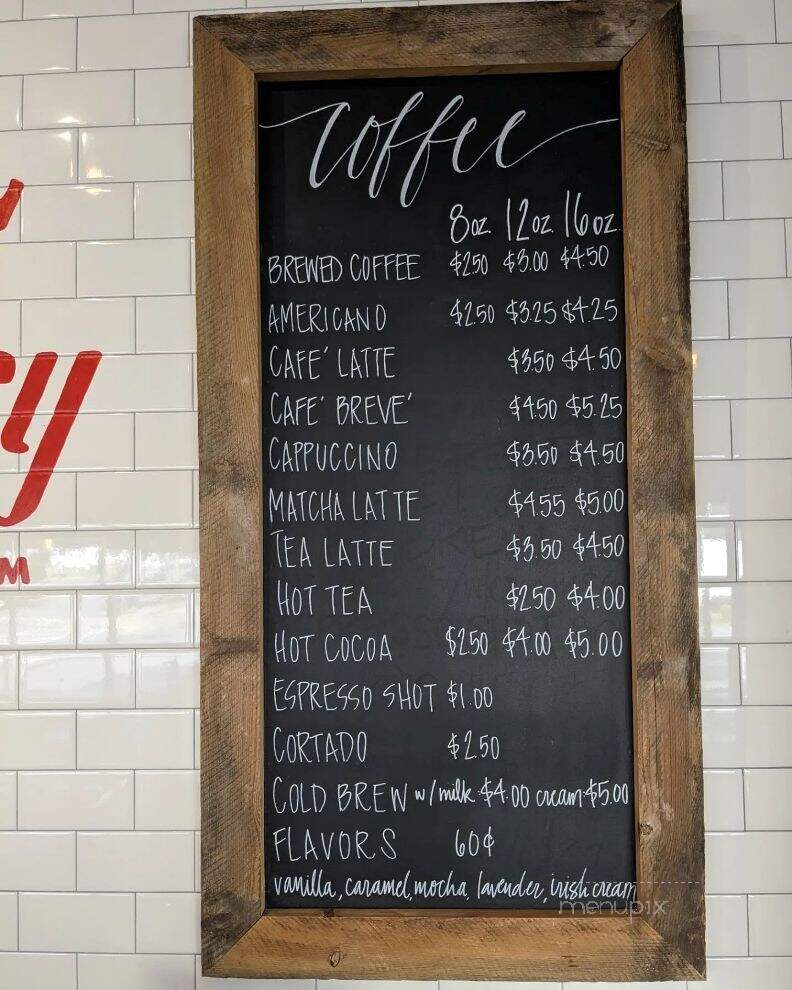 coffee
8oz. 12oz. 16oz.
BREWED COFFEE $2.50 $3.00 $4.50
AMERICANO $2.50 $3.25 $4.25
CAFE' LATTE $3.50 $4.50
CAFE' BREVE' $4.50 $5.25
CAPPUCCINO $3.50 $4.50
MATCHA LATTE $4.55 $5.00
TEA LATTE $3.50 $4.50
HOT TEA $2.50 $4.00
HOT COCOA $2.50 $4.00 $5.00
ESPRESSO SHOT $1.00
CORTADO $2.50
COLD BREW w/milk:$4.00 cream:$5.00
FLAVORS 60¢
vanilla, caramel, mocha, lavender, irish cream
menupix